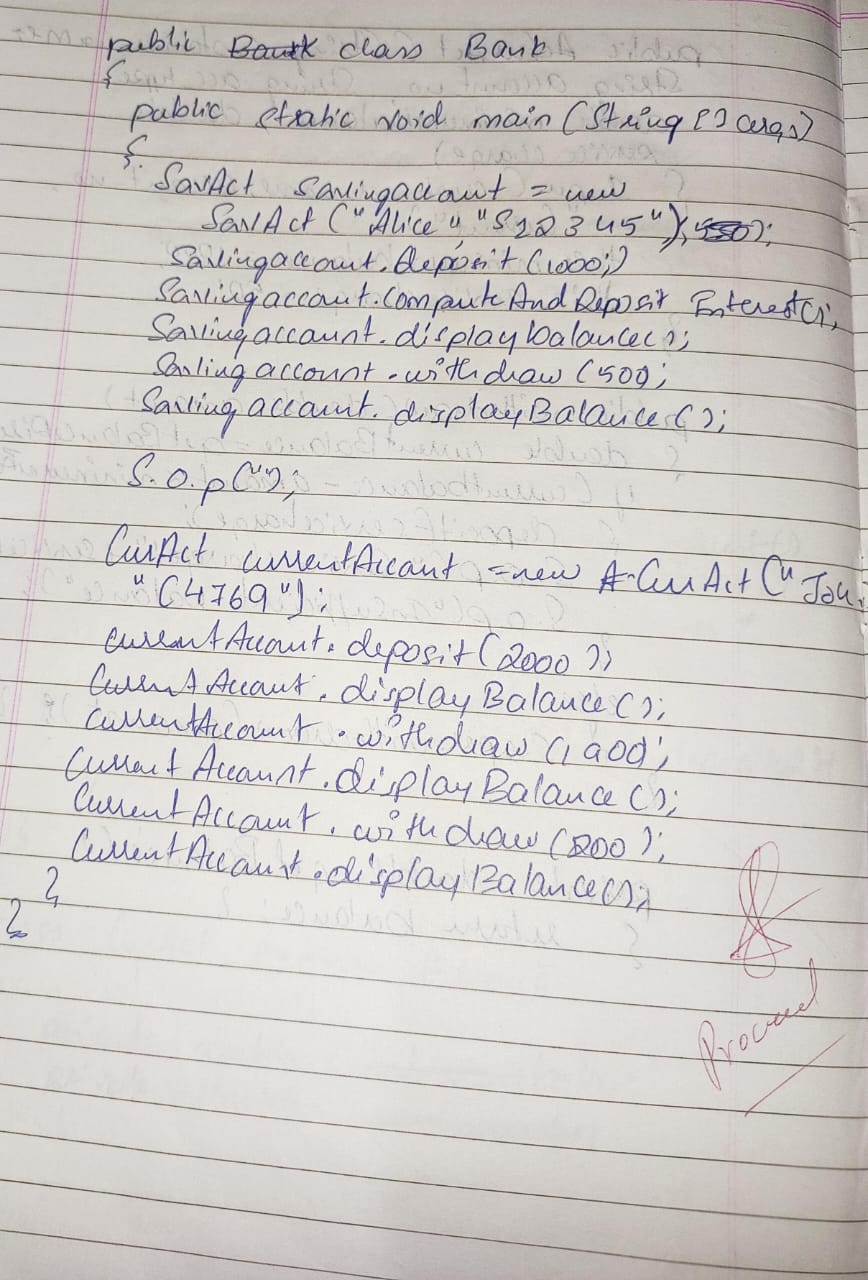 public class Bank
{
public static void main (String [] args)
{
SavAct Savingaccount = new
SavAct ("Alice", "S12345");
Savingaccount.deposit (1000;)
Savingaccount.compute And Deposit Interest();
Savingaccount.displaybalance();
Savingaccount.withdraw (500;
Savingaccount.displayBalance();
S.O.p("");
CurAct currentAccount = new CurAct ("
"C4769");
currentAccount.deposit(2000);
Current Account.displayBalance();
currentAccount.withdraw
Current Account.displayBalance();
Current Account.withdraw (200);
Current Account.displayBalance();
}
}
Proceed